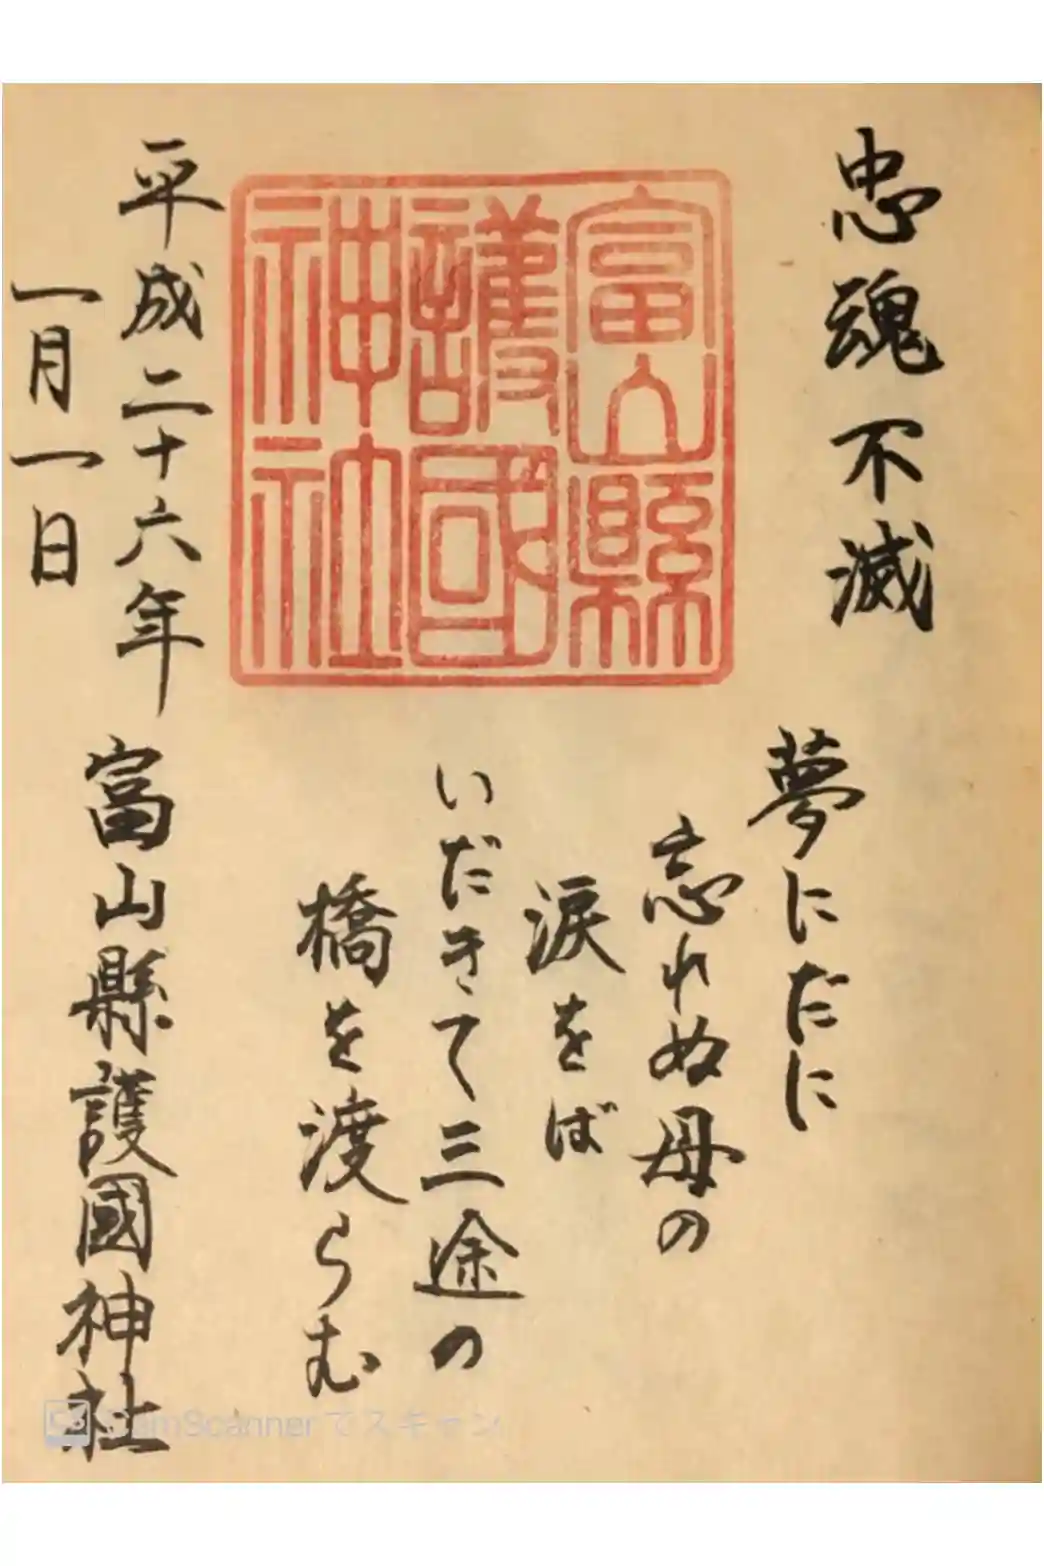 忠魂不滅
夢にだに
忘れぬ母の
涙をば
いだきて三途の
橋を渡らむ
富山縣
護國
神社
平成二十六年
一月一日
富山縣護國神社
CamScannerでスキャン